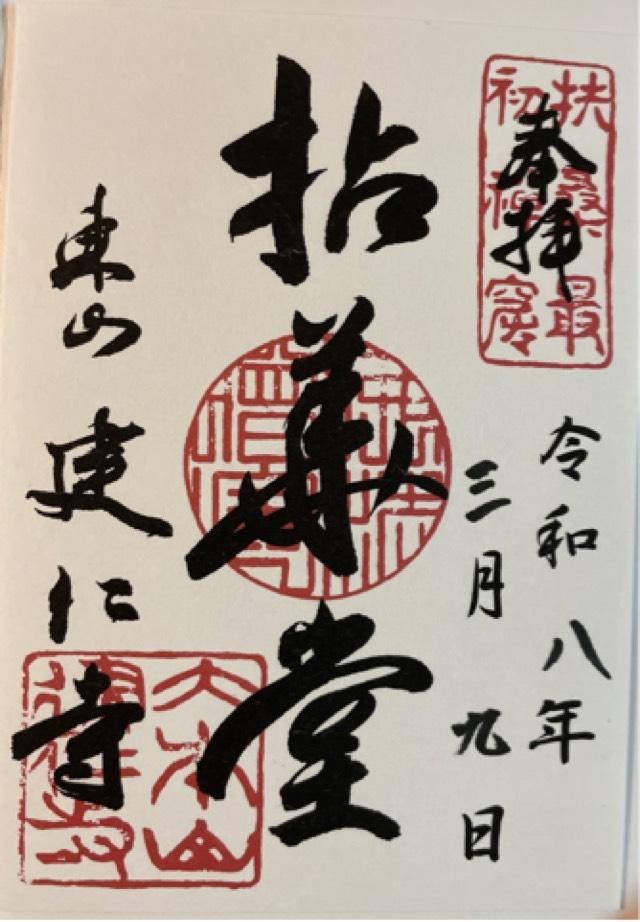 扶桑最
初禪窟
奉拝
令和八年
三月九日
拈華堂
東山 建仁寺
大本山